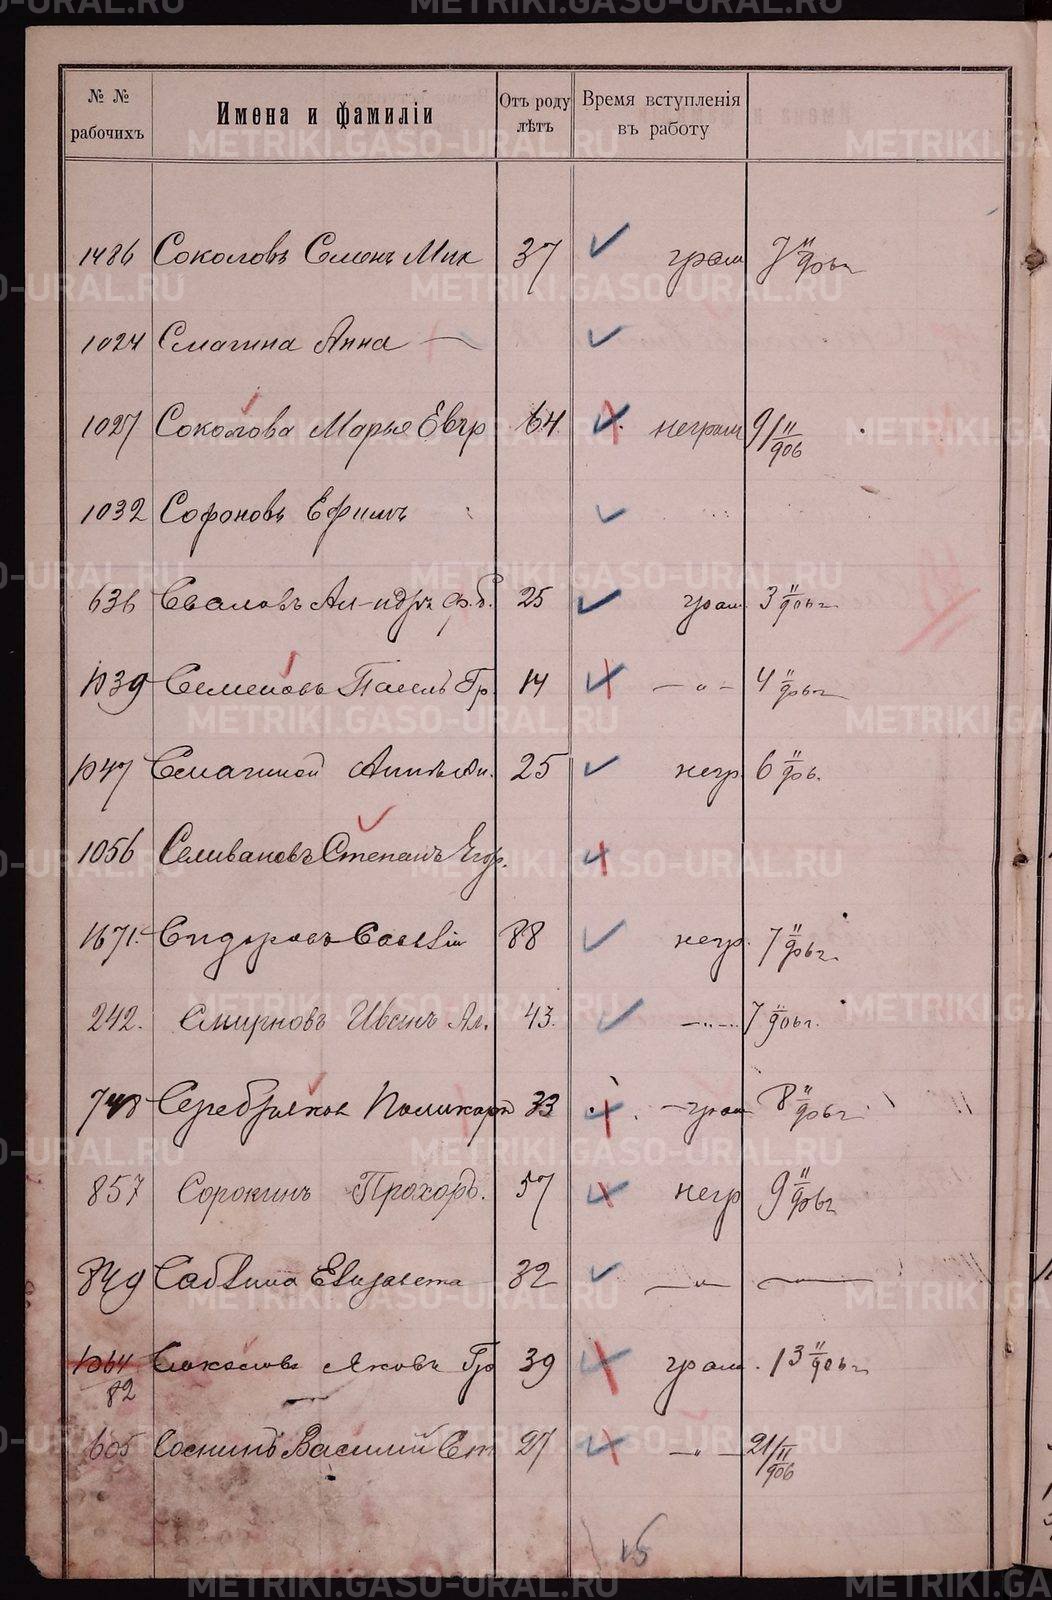 № № рабочихъ Имена и фамиліи Отъ роду лѣтъ Время вступленія въ работу
1486 Соколовъ Семенъ Мих 37 грам 7 II 906 г.
1024 Смагина Анна
1027 Соколова Марья Евгр 64 неграм 9/II 906
1032 Софоновъ Ефимъ
636 Сваловъ Ал-ндръ 25 грам. 3 II 906 г.
1039 Семеновъ Павелъ Гр. 14 — " — 4 II 906 г.
1047 Смагиной 25 негр. 6 II 906.
1056 Селивановъ Степанъ Егор.
1671. Сидоровъ 88 негр. 7 II 906 г.
242. Смирновъ Иванъ Ал. 43. — " — 7 II 906 г.
748 Серебряков Поликарп 33 грам 8 II 906 г.
857 Сорокинъ Прохоръ. 57 негр 9 II 906 г.
849 Елизавета 32 — " —
1064 82 Яковъ Гр 39 грам. 13 II 906 г.
605 Соснинъ Василий Ст 27 — " — 21/II 906
15
METRIKI.GASO-URAL.RU